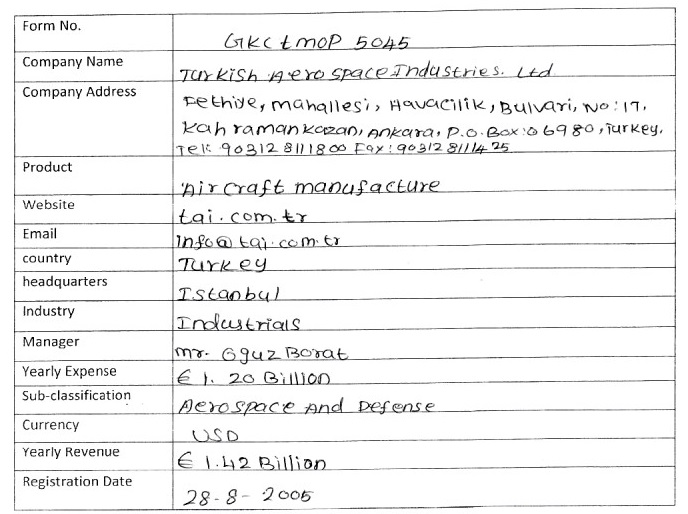 Form No.
GKCtmOP 5045
Company Name
Turkish Aerospace Industries. Ltd
Company Address
Fethiye, mahallesi, Havacilik, Bulvari, No: 17,
Kahramankazan, Ankara, P.O. Box: 06980, Turkey,
Tel: 903128111800 Fax: 903128111425
Product
Aircraft manufacture
Website
tai.com.tr
Email
info@tai.com.tr
country
Turkey
headquarters
Istanbul
Industry
Industrials
Manager
mr. Oguz Borat
Yearly Expense
€ 1. 20 Billion
Sub-classification
Aerospace And Defense
Currency
USD
Yearly Revenue
€ 1.42 Billion
Registration Date
28-8-2005